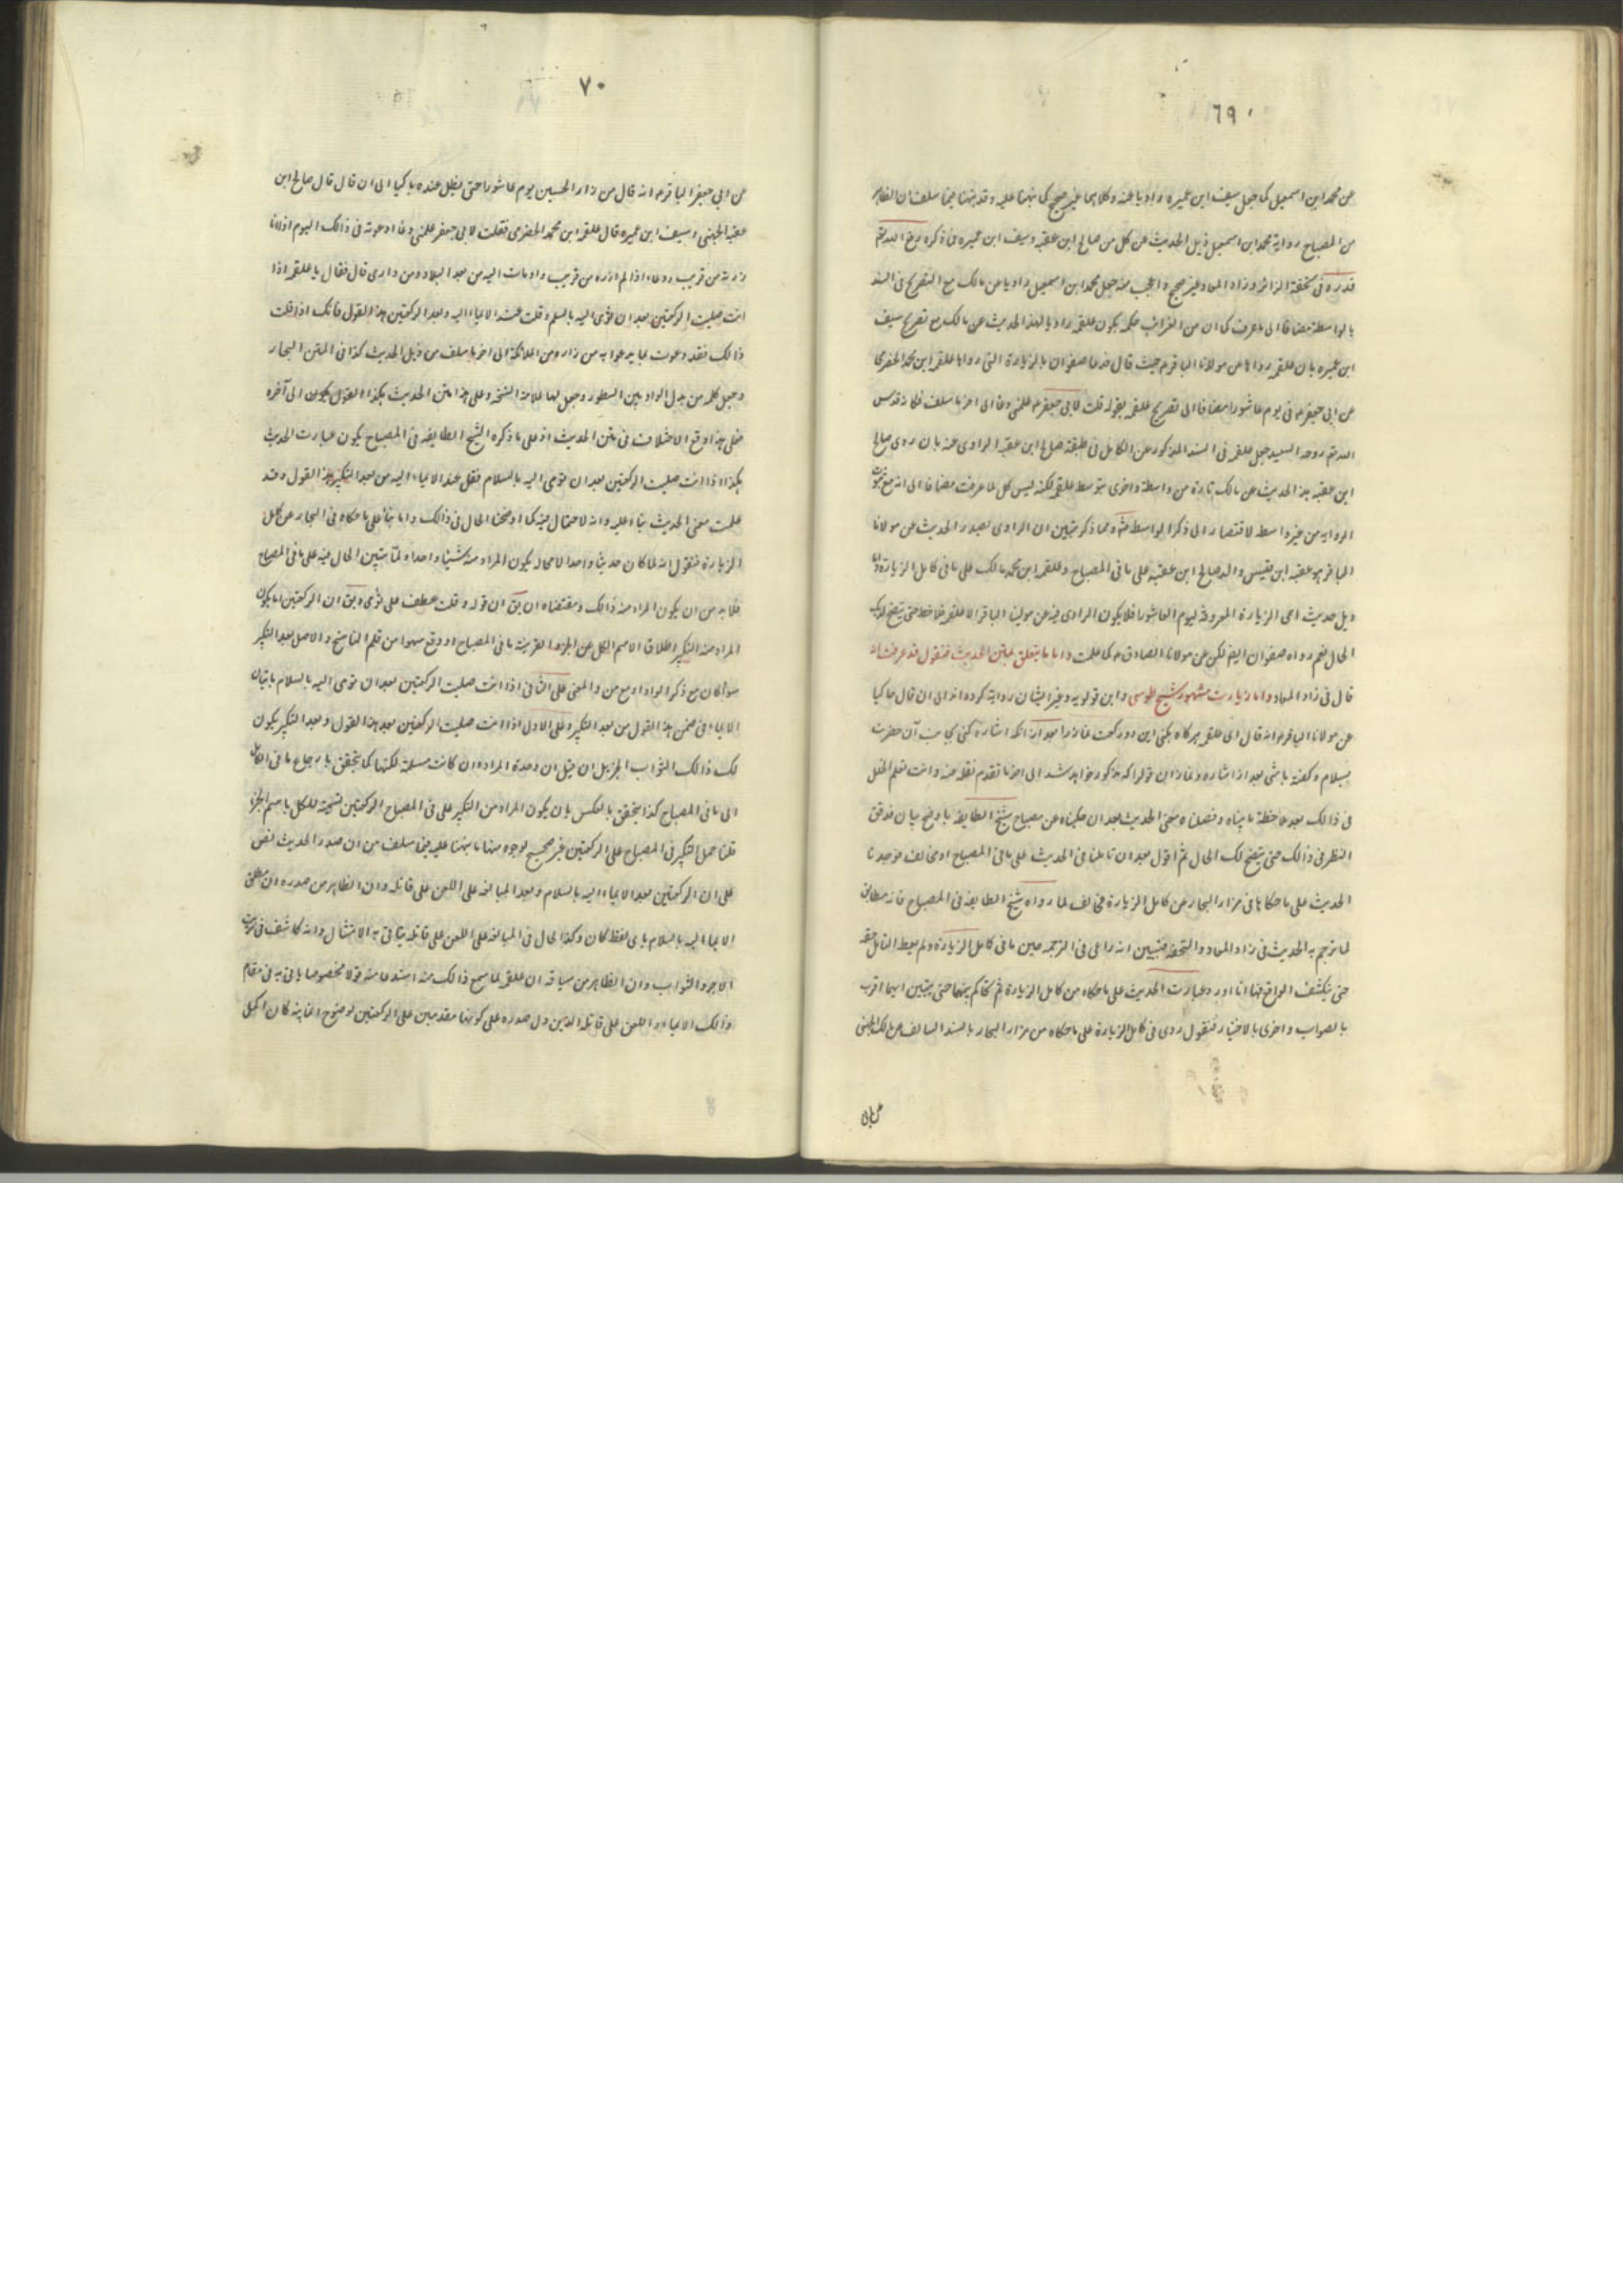 ٦٩
عن محمد ابن اسمعيل كما جعل سيف ابن عميره راويا عنه وكلاهما غير صحيح كما نبهنا عليه وقد نبهنا فيما سلف ان الظاهر
من المصباح رواية محمد ابن اسمعيل ذيل الحديث عن كل من صالح ابن عقبه وسيف ابن عميره فى ذكره
قدره فى تحفة الزائر وزاد المعاد غير صحيح واعجب منه جعل محمد ابن اسمعيل راويا عن مالك مع التصريح فى السند
بالواسطة مضافا الى ما عرفت كما ان من الغرائب حكمه بكون علقمه راويا لهذا الحديث عن مالك مع تصريح سيف
ابن عميره بان علقمه رواها عن مولانا الباقر م حيث قال فدعا صفوان بالزيارة التى رواها علقمه ابن محمد الحضرمى
عن ابى جعفر م فى يوم عاشورا مضافا الى تصريح علقمه بقوله قلت لابى جعفر م علمنى دعا الى اخر ما سلف فكانه قدس
الله روحه السعيد جعل علقمه فى السند المذكور عن الكامل فى طبقة صالح ابن عقبه الراوى عنه بان روى صالح
ابن عقبه هذا الحديث عن مالك تارة من واسطة واخرى بتوسط علقمه لكنه ليس كل لما عرفت مضافا الى انه مع
الروايه من غير واسط لا قتصار الى ذكر الواسطه ومما ذكر تبين ان الراوى لصدر الحديث عن مولانا
الباقر هو عقبه ابن قيس والد صالح ابن عقبه على ما فى المصباح وعلقمه ابن محمد مالك على ما فى كامل الزيارة
ذيل حديث اعى الزيارة المعروفه ليوم العاشورا فلا يكون الراوى فيه عن مولينا الباقر الا علقمه فلاحظ حتى يتضح لديك
الحال نعم رواه صفوان ايضا لكن عن مولانا الصادق م كما علمت واما ما يتعلق بمتن الحديث فنقول قد عرفت انه
قال فى زاد المعاد واما زيارت مشهور شيخ طوسى وابن قولويه وغير ايشان روايه كرده اند الى ان قال حاكيا
عن مولانا الباقر م انه قال اى علقمه هركاه بكنى اين دو ركعت نماز را بعد از آنكه اشاره كنى بجانب آن حضرت
بسلام وكفته باشى بعد از اشاره ونماز ان قول را كه مذكور خواهد شد الى اخر ما تقدم نقله عنه وانت تعلم الخلل
فى ذالك بعد ملاحظة ما بيناه وفصلناه معنى الحديث بعد ان حكيناه عن مصباح شيخ الطايفه باوضح بيان فدقق
النظر فى ذالك حتى يتضح لك الحال ثم اقول بعد ان تاملنا فى الحديث على ما فى المصباح اومخالف فوجدنا
الحديث على ما حكاها فى مزار البحار عن كامل الزيارة مخالف لما رواه شيخ الطايفه فى المصباح فانه مطابق
لما ترجم به الحديث فى زاد المعاد والتحفه فتبين انه راعى فى الترجمه متن ما فى كامل الزيارة ولم يعط التامل حقه
حتى ينكشف الواقع فها انا اورد عبارت الحديث على ما حكاه من كامل الزيارة ثم تحاكم بينهما حتى يتبين ايهما اقرب
بالصواب واحرى بالاختيار فنقول روى فى كامل الزيارة على ما حكاه من مزار البحار بالسند السالف عن مالك الجهنى
عن ابى
٧٠
عن ابى جعفر الباقر م انه قال من زار الحسين يوم عاشورا حتى يظل عنده باكيا الى ان قال قال صالح ابن
عقبه الجهنى وسيف ابن عميره قال علقمه ابن محمد الحضرمى فقلت لابى جعفر علمنى دعا ادعو به فى ذالك اليوم اذا انا
زرته من قريب ودعاء اذا لم ازره من قريب واومات اليه من بعد البلاد ومن دارى قال فقال يا علقمه اذا
انت صليت الركعتين بعد ان تؤمى اليه بالسلم وقلت عند الايماء اليه وبعد الركعتين هذا القول فانك اذا قلت
ذالك فقد دعوت بما يدعوا به من زاره من الملائكة الى اخر ما سلف من ذيل الحديث كذا فى المتن البحار
وجعل كلمه من بدل الواو بين السطور وجعل لها علامة النسخه وعلى هذا متن الحديث هكذا القول يكون الى آخره
فعلى هذا وقع الاختلاف فى متن الحديث اذ على ما ذكره الشيخ الطايفه فى المصباح يكون عبارت الحديث
هكذا اذا انت صليت الركعتين بعد ان تومى اليه بالسلام فقل عند الايماء اليه من بعد التكبير هذا القول وقد
علمت معنى الحديث بناء عليه وانه لا احتمال فيه كما اوضحنا الحال فى ذالك واما بناء على ما حكاه فى البحار عن كامل
الزيارة فنقول انه لما كان حديثا واحدا لا محاله يكون المراد منه شيئا واحدا ولما تبين الحال فيه على ما فى المصباح
فلا بد من ان يكون المراد منه ذالك ومقتضاه ان يق ان قوله وقلت عطف على تؤمى ويق ان الركعتين اما يكون
المراد منه التكبير اطلاقا لاسم الكل على الجزء القرينة ما فى المصباح او وقع سهوا من قلم الناسخ والاصل بعد التكبير
سواء كان مع ذكر الواو او مع من والمعنى على الثانى اذا انت صليت الركعتين بعد ان تومى اليه بالسلام باتيان
الايماء فى ضمن هذا القول من بعد التكبير وعلى الاول اذا انت صليت الركعتين بعد هذا القول وبعد التكبير يكون
لك ذالك الثواب الجزيل ان قيل ان وحدة المراد وان كانت مسلمة لكنها كما يتحقق بارجاع ما فى الكامل
الى ما فى المصباح كذا يتحقق بالعكس بان يكون المراد من التكبير على فى المصباح الركعتين تسمية للكل باسم الجزء
قلنا حمل التكبير فى المصباح على الركعتين غير صحيح لوجوه منها ما نبهنا عليه فيما سلف من ان صدر الحديث نص
على ان الركعتين بعد الايماء اليه بالسلام وبعد المبالغه على اللعن على قاتله وان الظاهر من صدره ان مطلق
الايماء اليه بالسلام باى لفظ كان وكذا الحال فى المبالغه على اللعن على قاتله يتاتى به الامتثال وانه كاشف فى
الاجر والثواب وان الظاهر من سياقه ان علقمه لما سمع ذالك منه استدعا منه قولا مخصوصا ياتى به فى مقام
ذالك الايماء واللعن على قاتله الذين دل صدره على كونهما مقدمين على الركعتين لوضوح انه كان اكمل